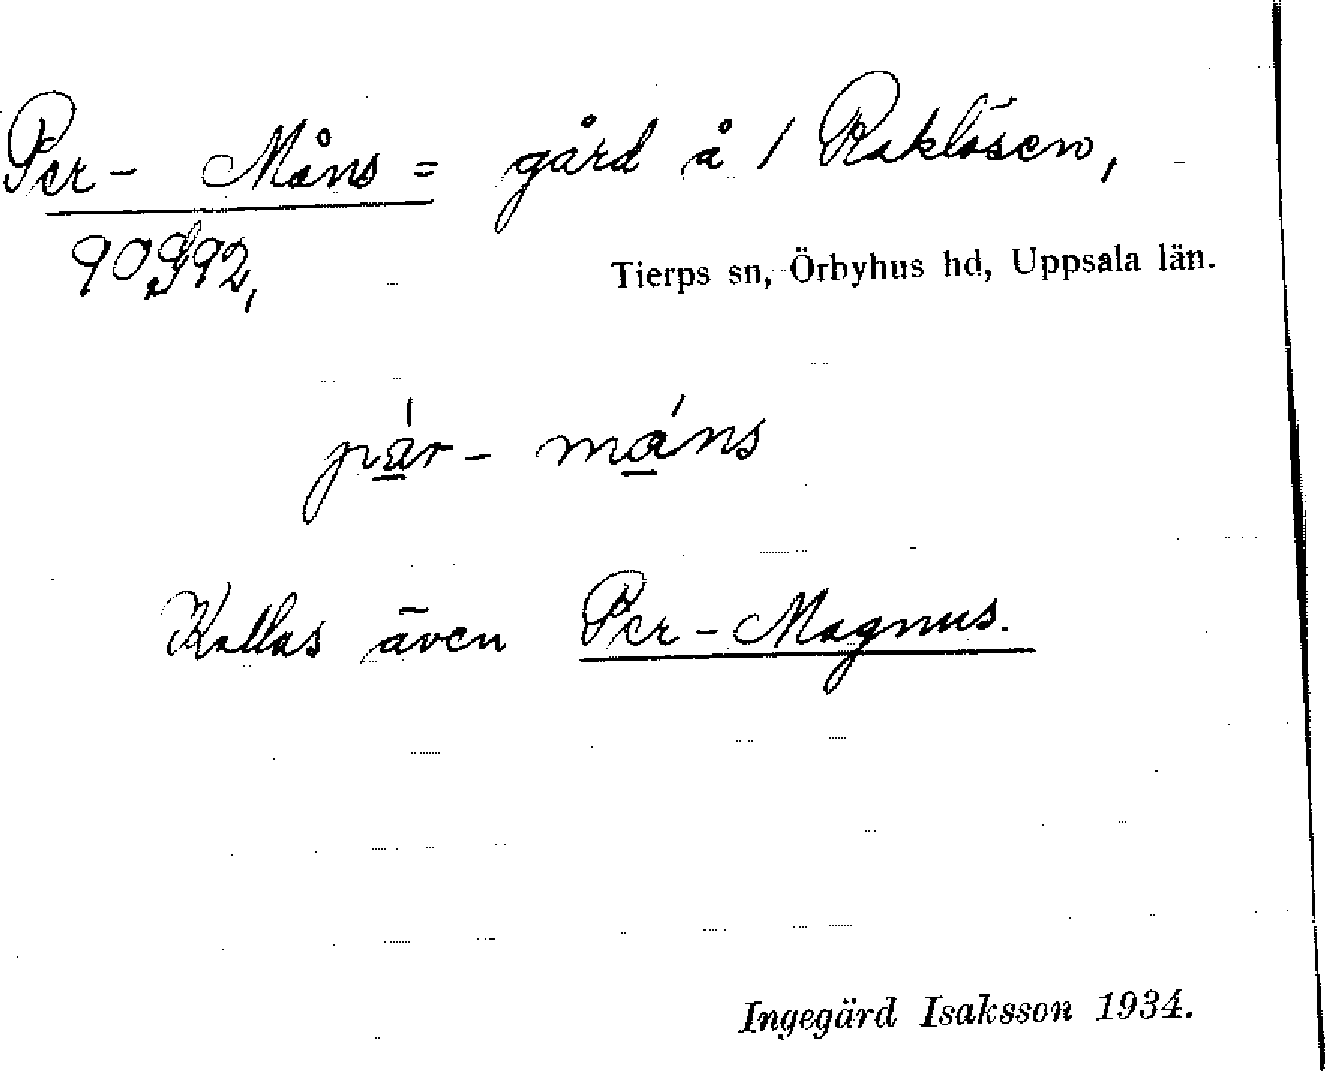 Per- Måns = gård å / Raklösen,
Tierps sn, Örbyhus hd, Uppsala län.
pär- máns
Kallas även Per-Magnus.
Ingegärd Isaksson 1934.